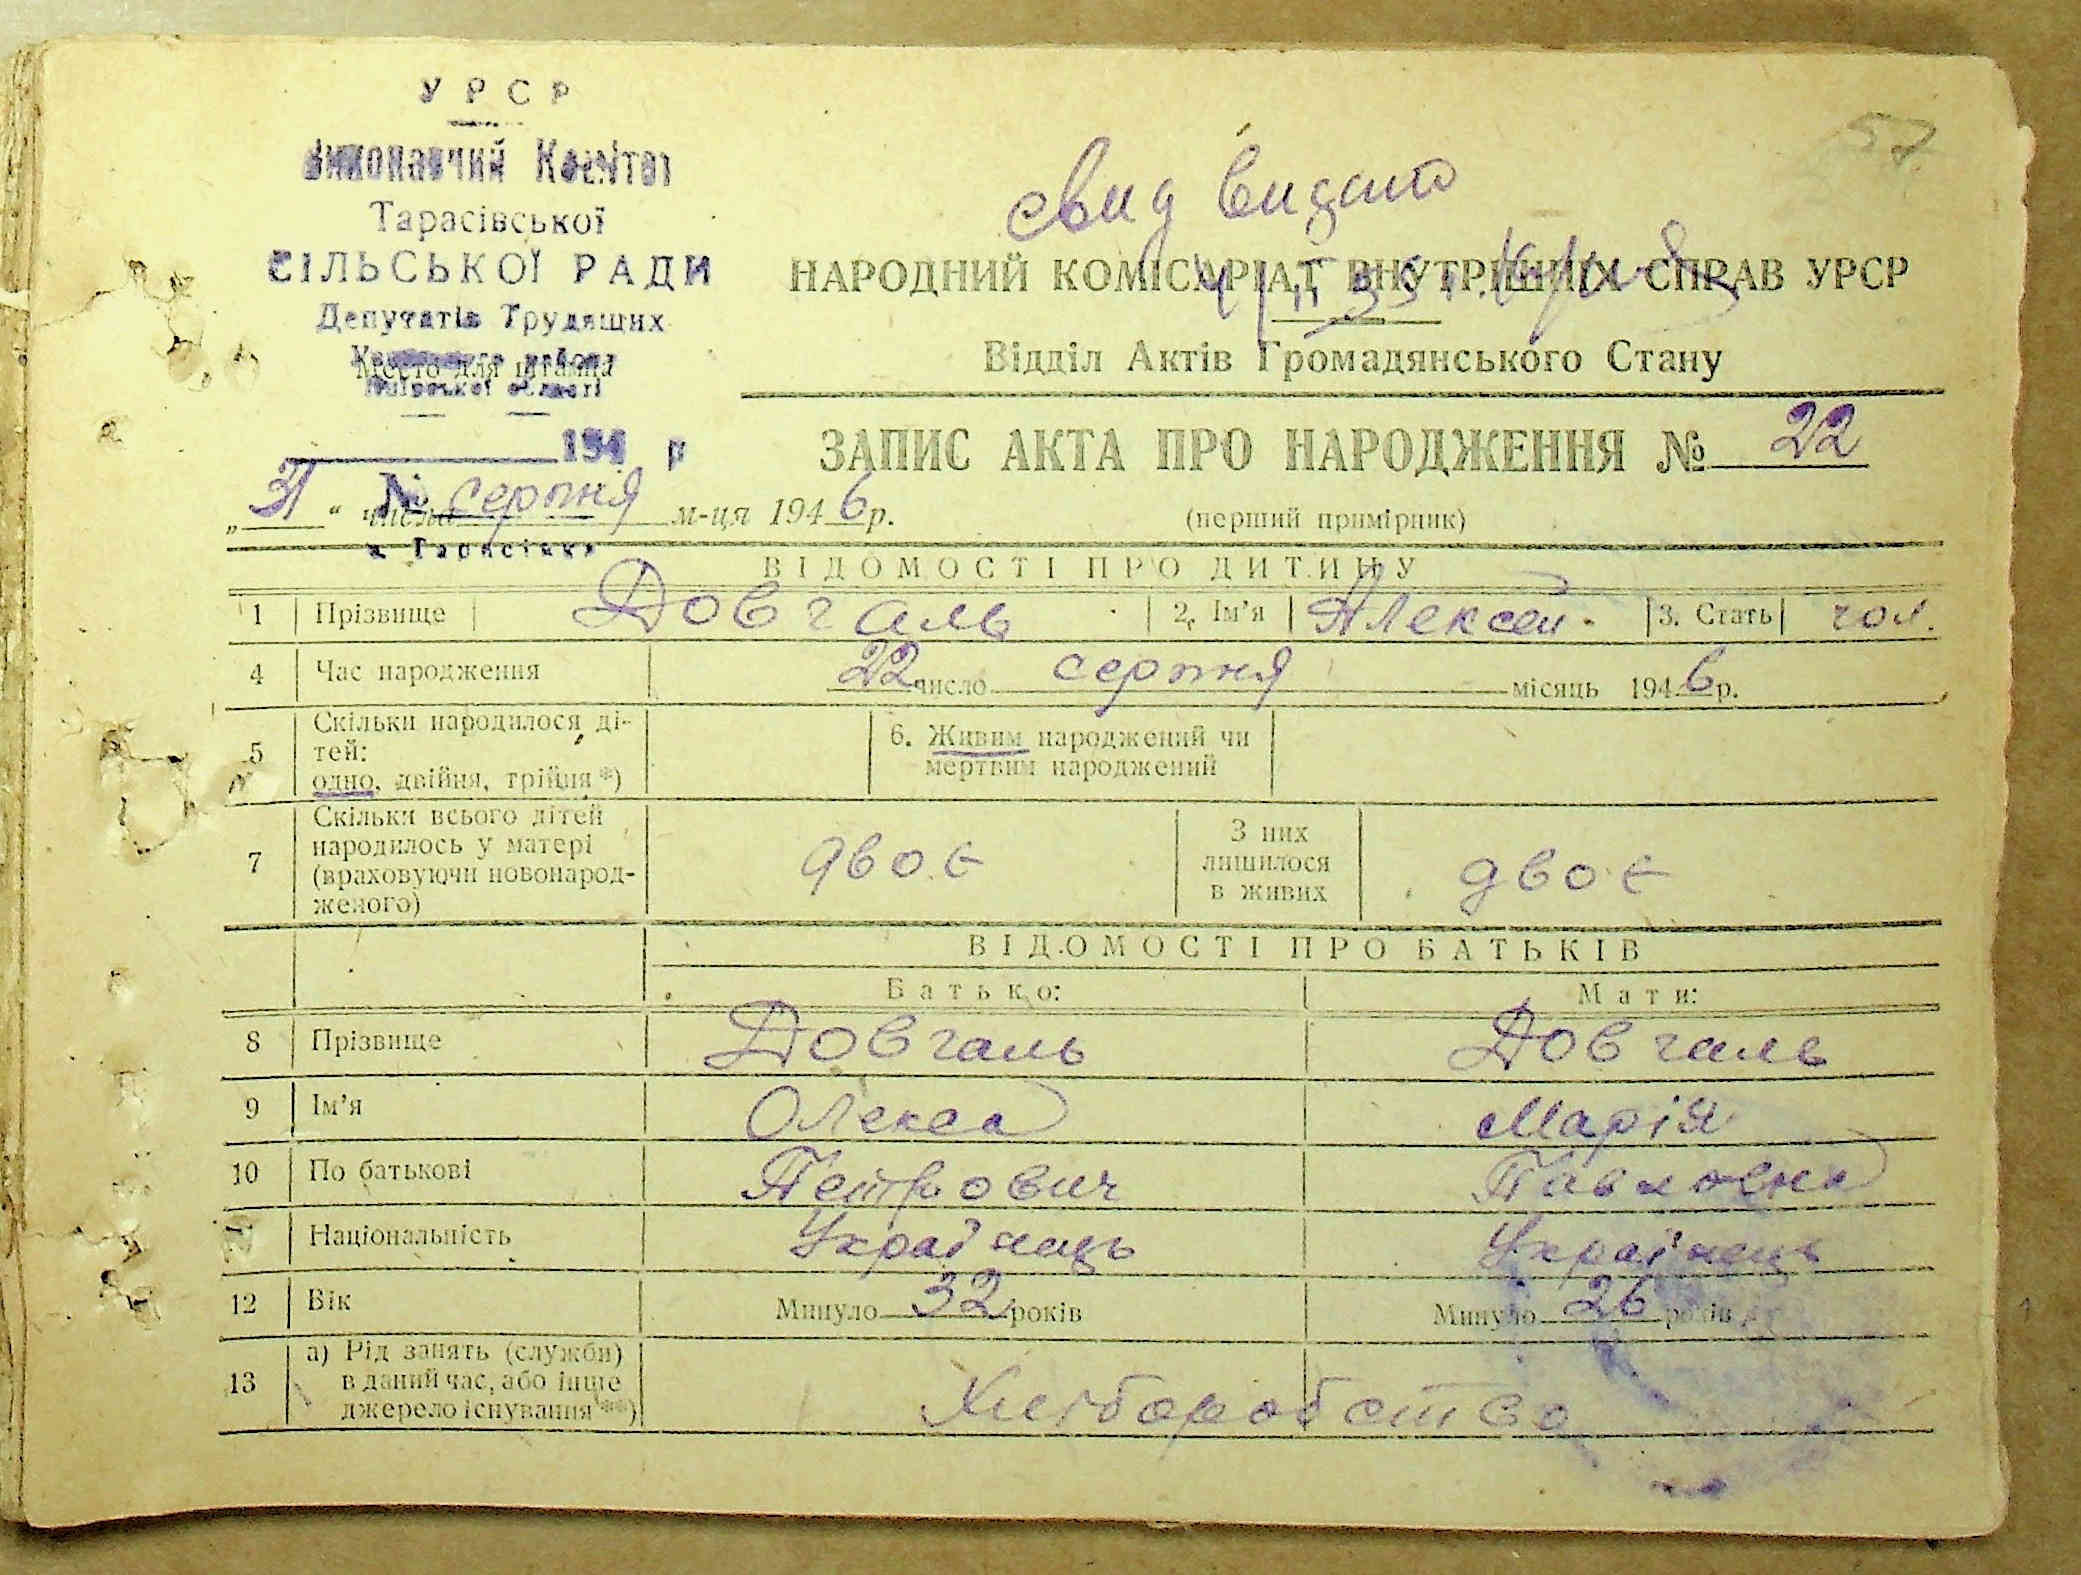 57
УРСР
Виконавчий Комітет
Тарасівської
СІЛЬСЬКОЇ РАДИ
Депутатів Трудящих
району
Київської області
Место для штампа
194 р
№
с. Тарасівка
свид видано
НАРОДНИЙ КОМІСАРІАТ ВНУТРІШНІХ СПРАВ УРСР
Відділ Актів Громадянського Стану
ЗАПИС АКТА ПРО НАРОДЖЕННЯ № 22
„31“ числа серпня м-ця 1946 р.
(перший примірник)
ВІДОМОСТІ ПРО ДИТИНУ
1 Прізвище Довгаль 2. Ім'я Алексей. 3. Стать чол.
4 Час народження 22 число серпня місяць 1946 р.
5 Скільки народилося ді-
тей:
одно, двійня, трійня*)
6. Живим народжений чи
мертвим народжений
7 Скільки всього дітей
народилось у матері
(враховуючи новонарод-
женого)
двоє
З них
лишилося
в живих
двоє
ВІДОМОСТІ ПРО БАТЬКІВ
Батько: Мати:
8 Прізвище Довгаль Довгаль
9 Ім'я Олекса Марія
10 По батькові Петрович Павловна
Національність Українець Українець
12 Вік Минуло 32 років Минуло 26 років
13 а) Рід занять (служби)
в даний час, або інше
джерело існування**)
Хліборобство